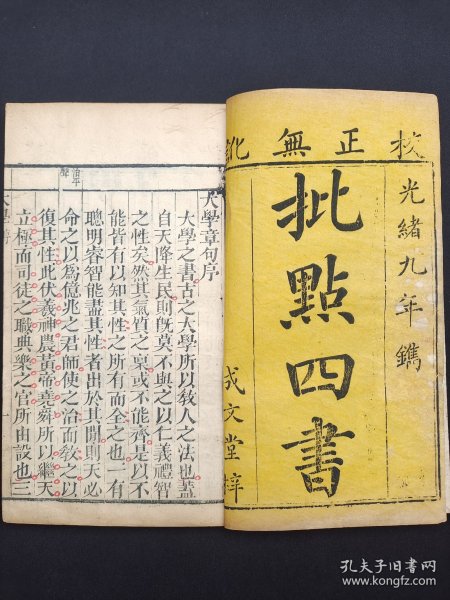 校正無訛
光緒九年鐫
批點四書
成文堂梓
大學章句序
大學之書古之大學所以敎人之法也蓋
自天降生民則旣莫不與之以仁義禮智
之性矣然其氣質之稟或不能齊是以不
能皆有以知其性之所有而全之也一有
聰明睿智能盡其性者出於其閒則天必
命之以爲億兆之君師使之治而敎之以
復其性此伏羲神農黃帝堯舜所以繼天
立極而司徒之職典樂之官所由設也三
治平
聲
孔夫子旧书网
www.kongfz.com